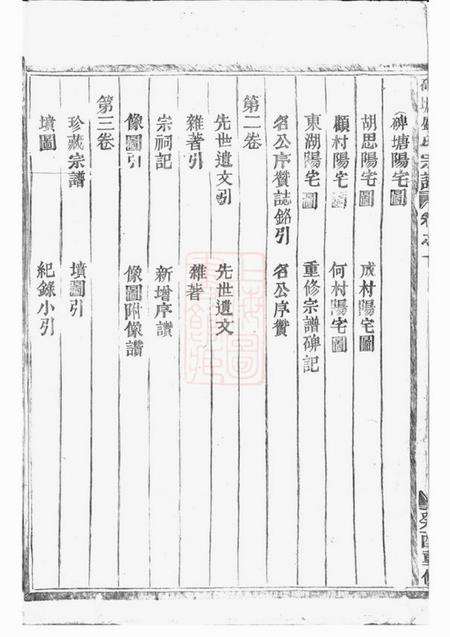 碑塘陽宅圖
胡思陽宅圖 成村陽宅圖
顧村陽宅圖 何村陽宅圖
東湖陽宅圖 重修宗譜碑記
名公序贊誌銘引 名公序贊
第二卷
先世遺文引 先世遺文
雜著引 雜著
宗祠記 新增序讚
像圖引 像圖附像讚
第三卷
珍藏宗譜 墳圖引
墳圖 紀錄小引